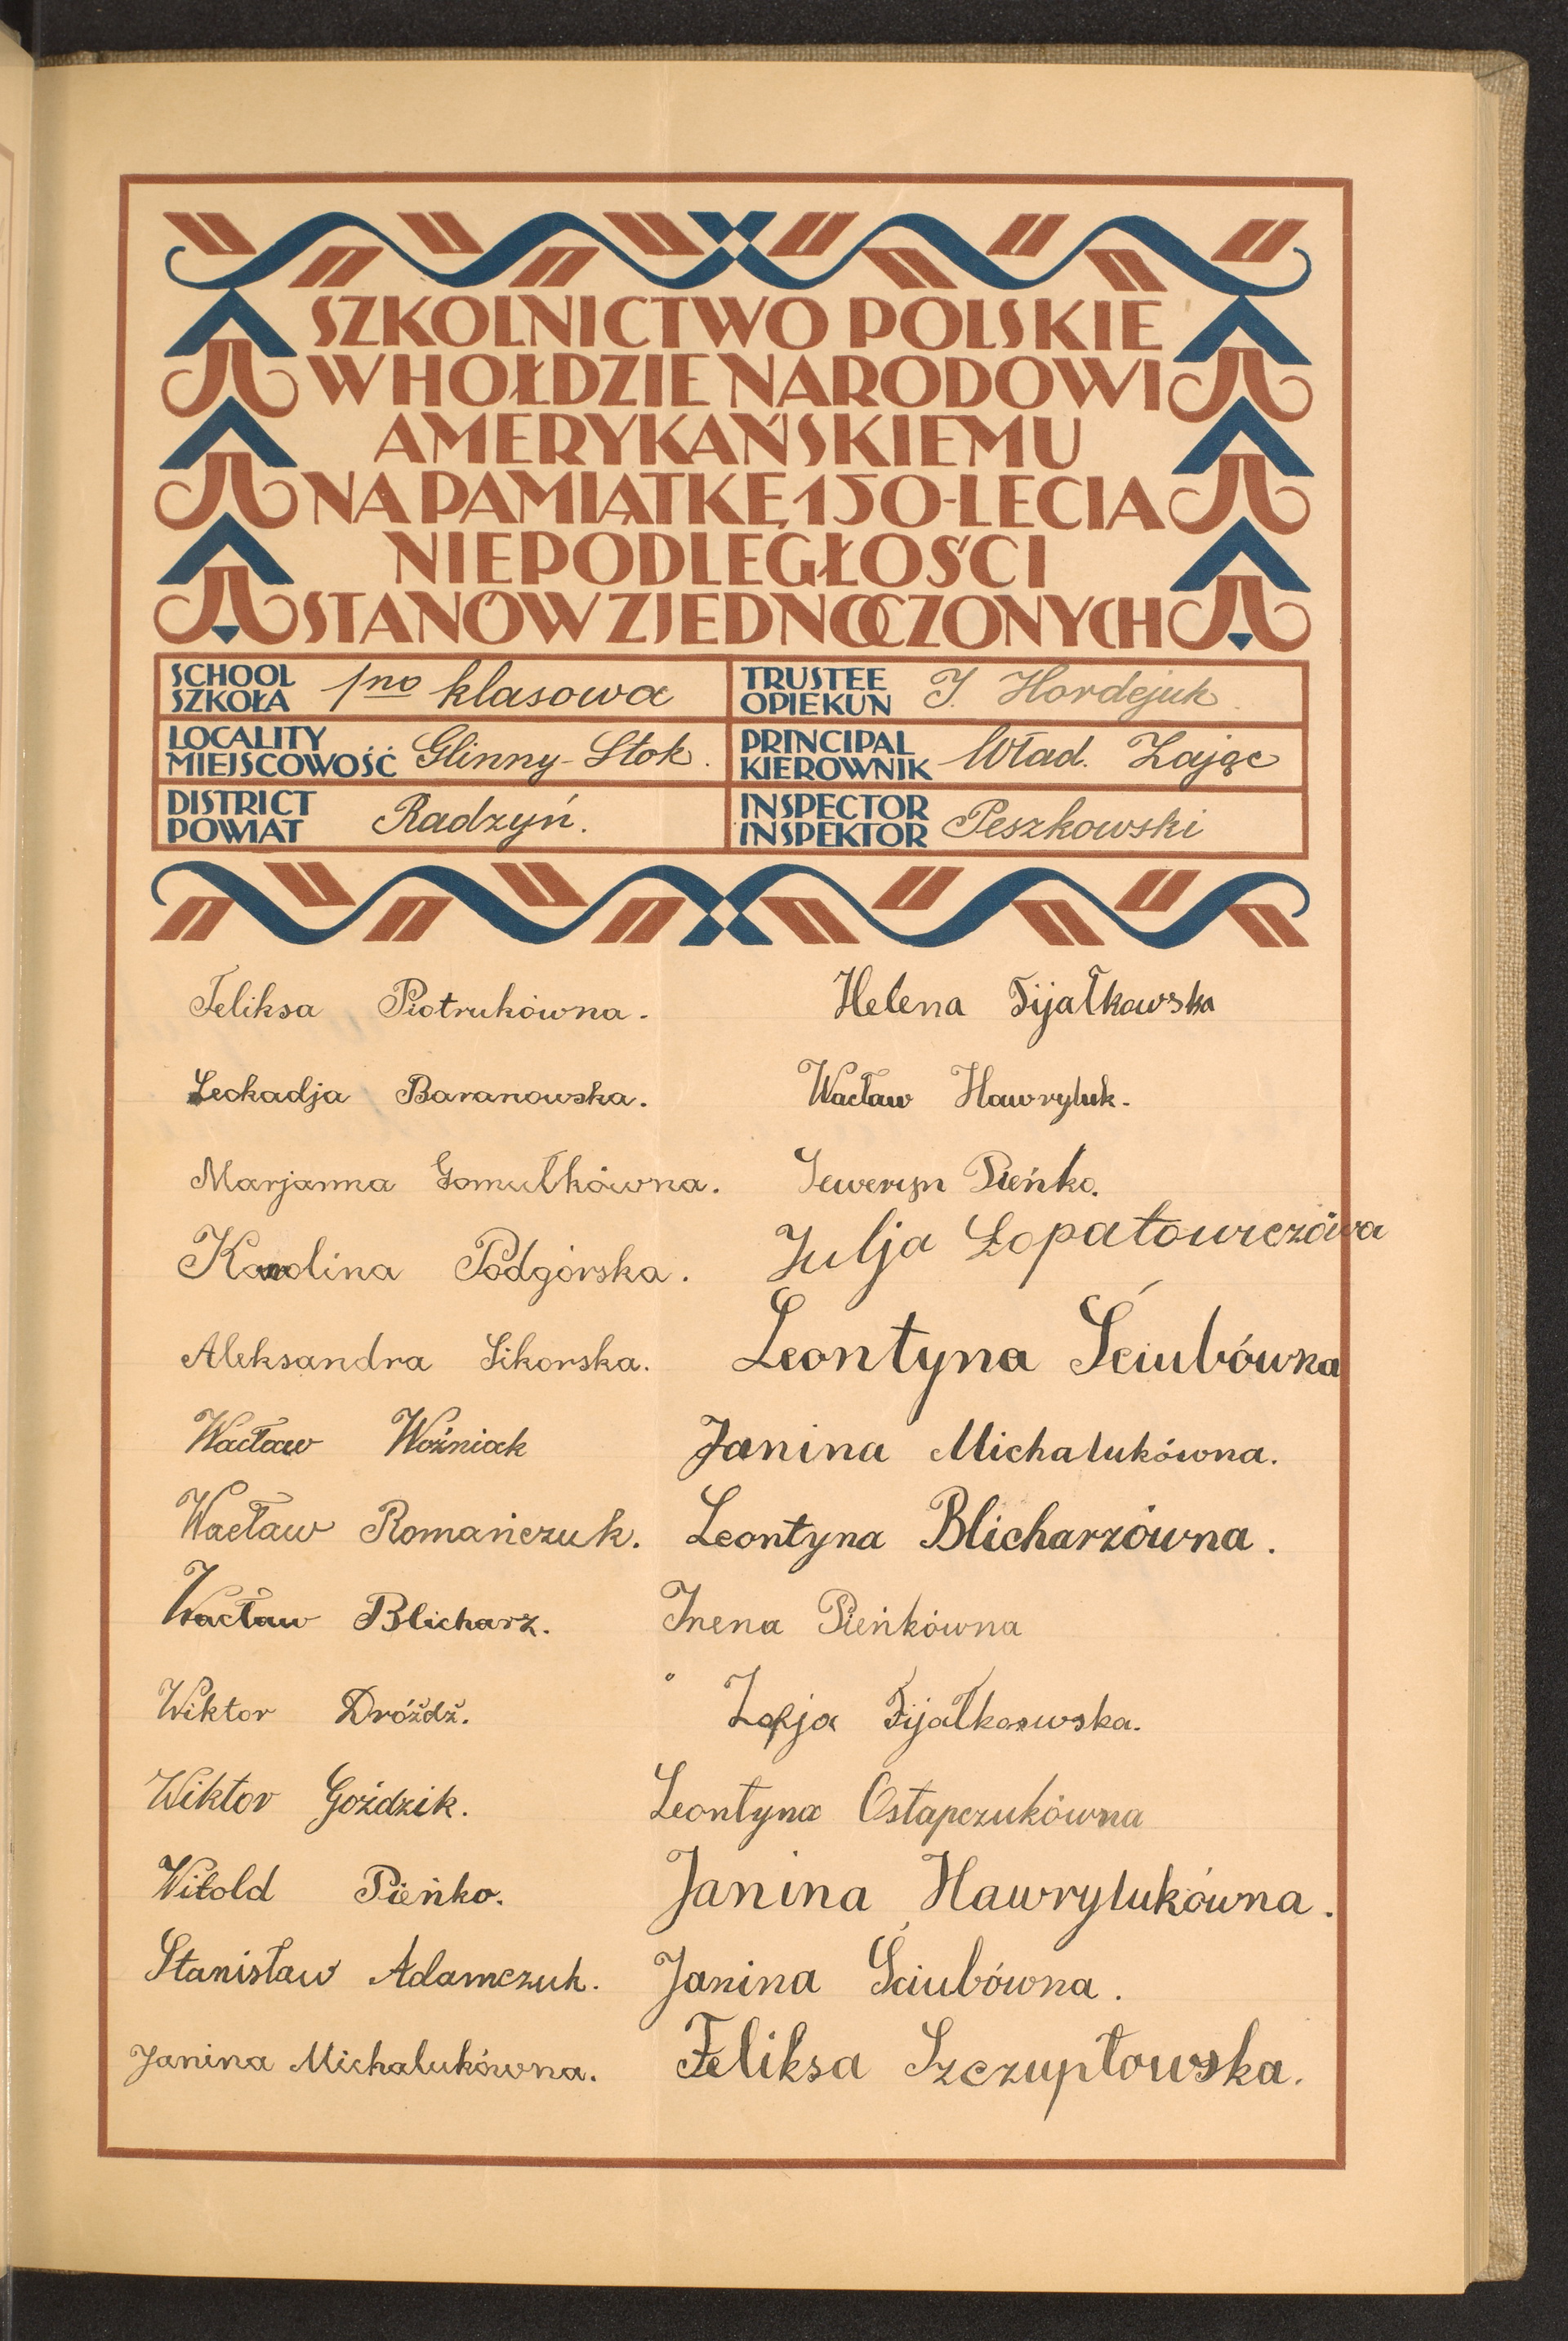 SZKOLNICTWO POLSKIE
W HOŁDZIE NARODOWI
AMERYKAŃSKIEMU
NA PAMIĄTKĘ 150-LECIA
NIEPODLEGŁOŚCI
STANÓW ZJEDNOCZONYCH
SCHOOL
SZKOŁA 1no klasowa
TRUSTEE
OPIEKUN J. Hordejuk
LOCALITY
MIEJSCOWOŚĆ Glinny-Stok.
PRINCIPAL
KIEROWNIK Wład. Zając
DISTRICT
POWIAT Radzyń.
INSPECTOR
INSPEKTOR Peszkowski
Feliksa Piotrukówna.
Leokadja Baranowska.
Marjanna Gomułkówna.
Karolina Podgórska.
Aleksandra Sikorska.
Wacław Woźniak
Wacław Romańczuk.
Wacław Blicharz.
Wiktor Dróżdż.
Wiktor Goździk.
Witold Pieńko.
Stanisław Adamczuk.
Janina Michalukówna.
Helena Fijałkowska
Wacław Hawryluk.
Seweryn Pieńko.
Julja Łopatowiczówa
Leontyna Ściubówna
Janina Michalukówna.
Leontyna Blicharzówna.
Irena Pieńkówna
Zofja Fijałkowska.
Leontyna Ostapczukówna
Janina Hawrylukówna.
Janina Ściubówna.
Feliksa Szczupłowska.